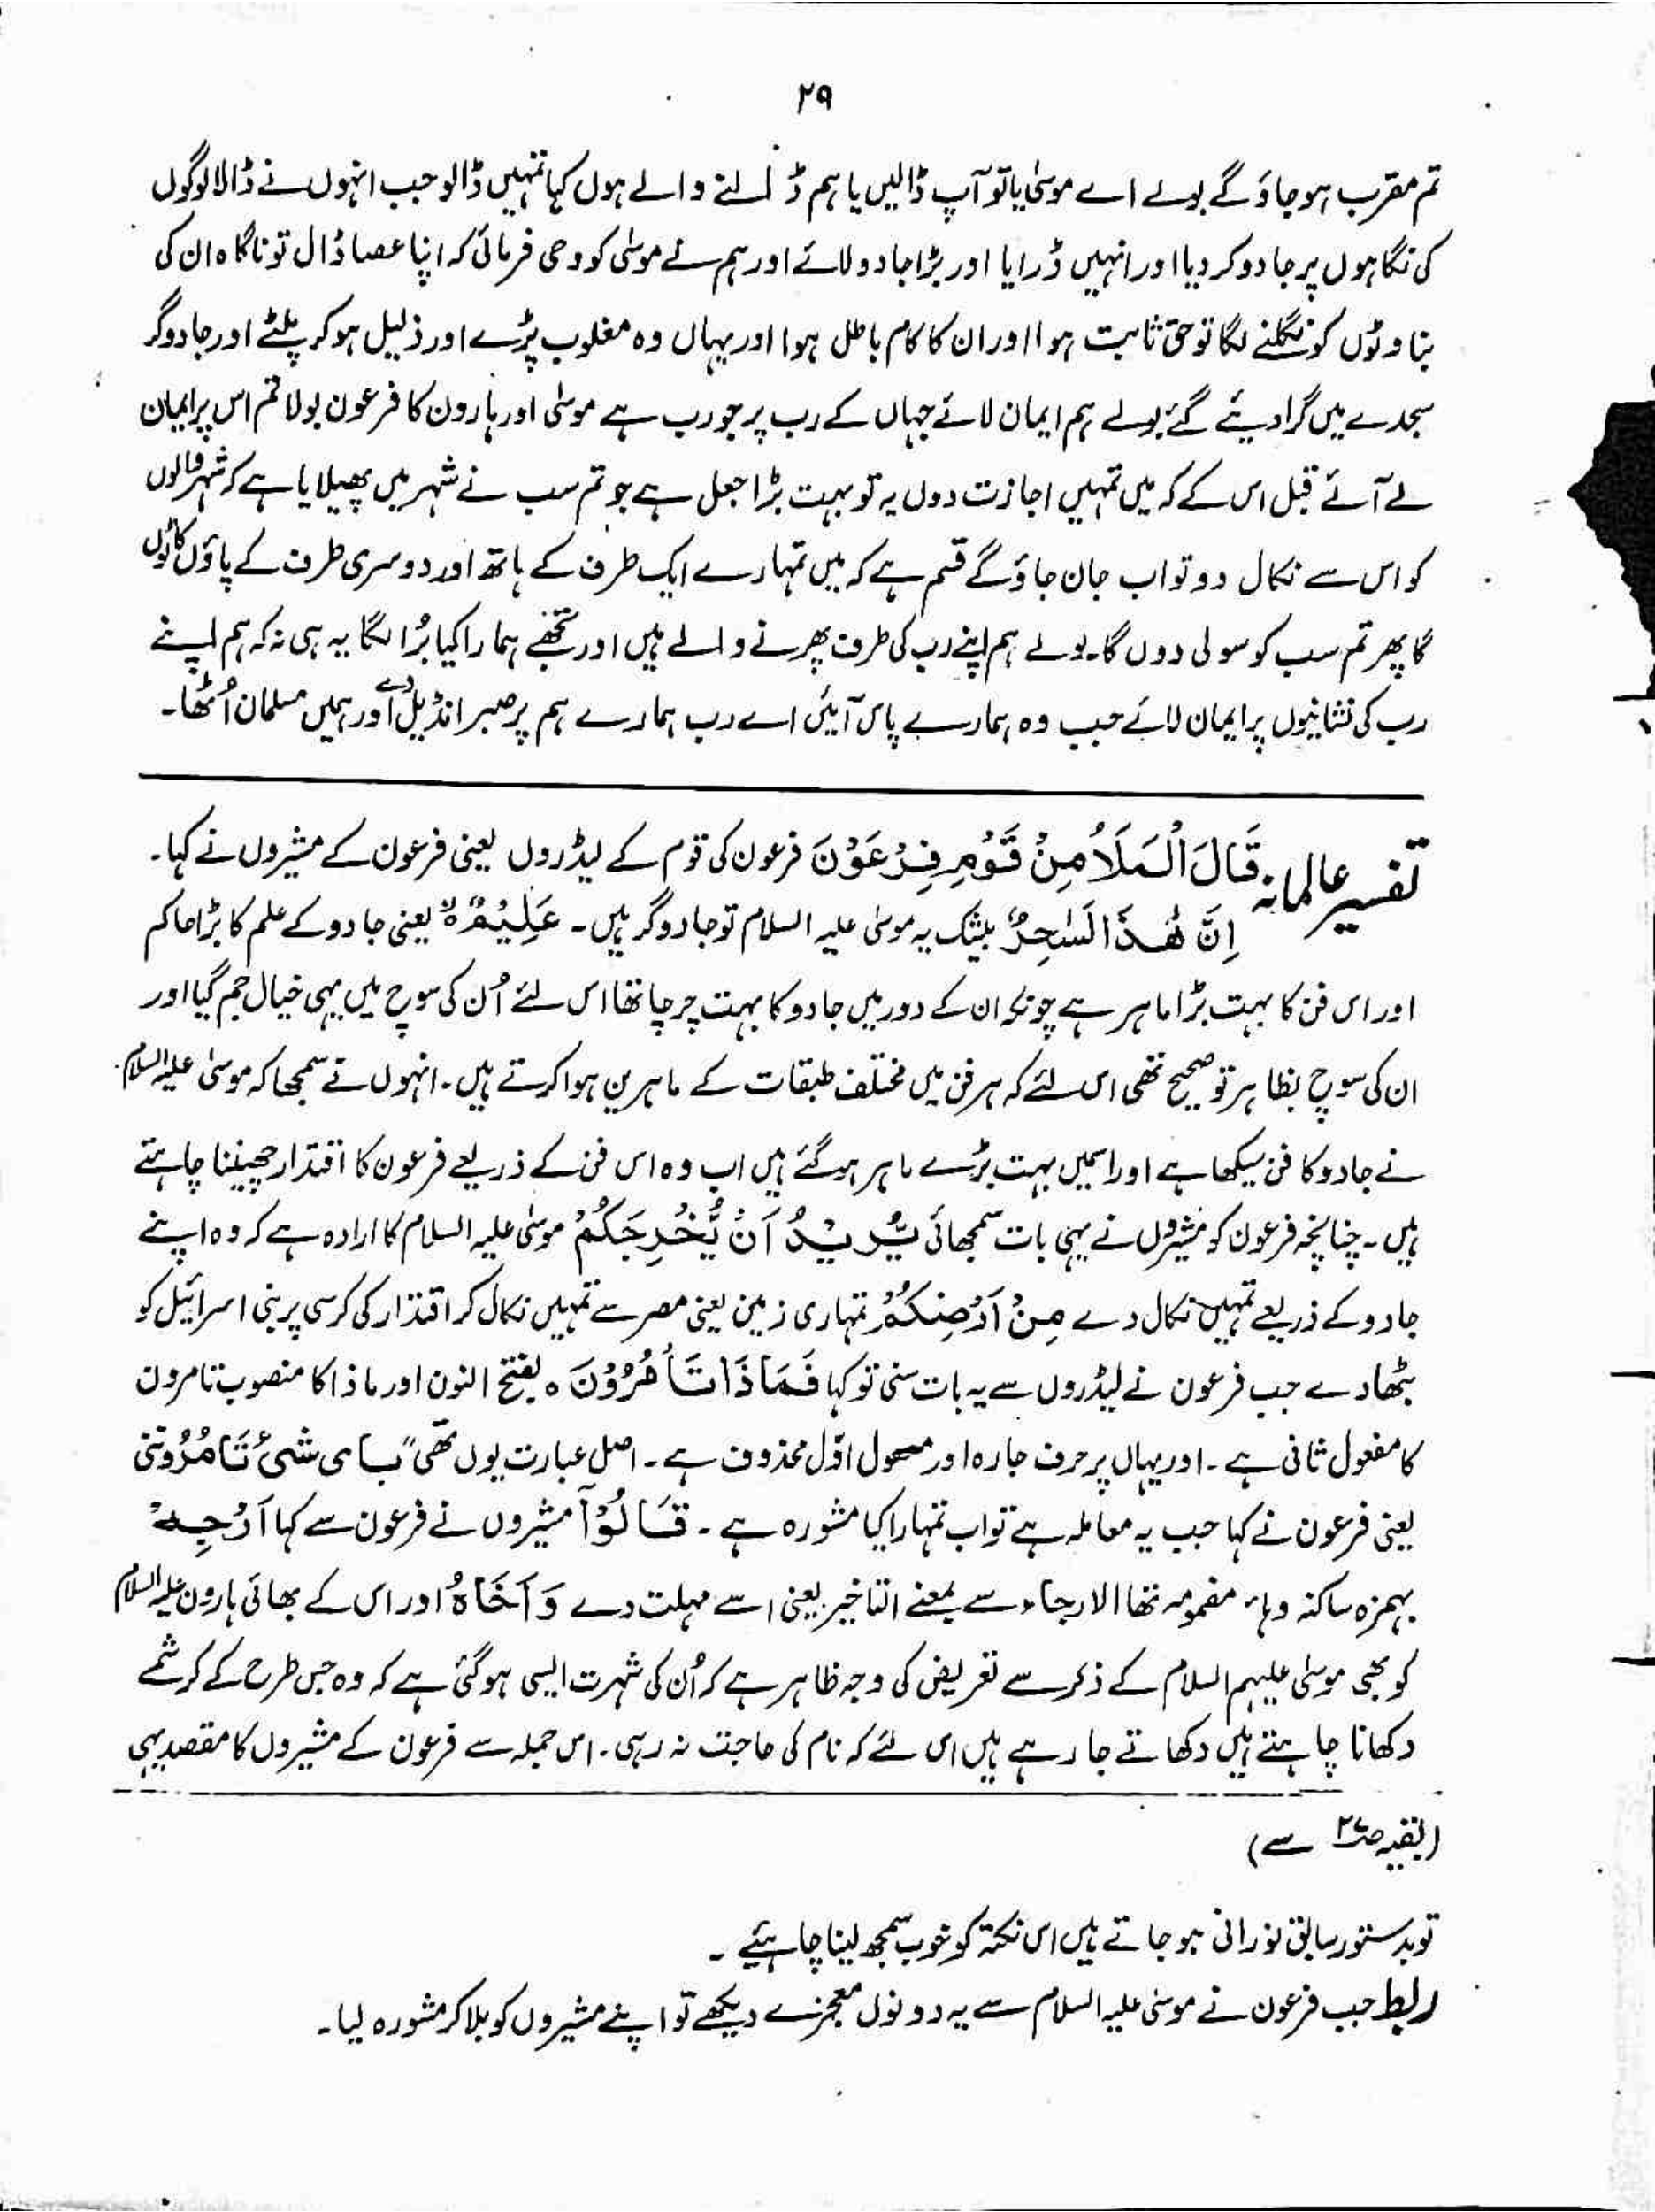 ۲۹
تم مقرب ہو جاؤ گے بولے اے موسیٰ یا تو آپ ڈالیں یا ہم ڈالنے والے ہوں کہا تمہیں ڈالو جب انہوں نے ڈالا لوگوں
کی نگاہوں پر جادو کر دیا اور انہیں ڈرایا اور بڑا جادو لائے اور ہم نے موسیٰ کو وحی فرمائی کہ اپنا عصا ڈال تو ناگاہ ان کی
بناوٹوں کو نگلنے لگا تو حق ثابت ہوا اور ان کا کام باطل ہوا اور یہاں وہ مغلوب پڑے اور ذلیل ہو کر پلٹے اور جادوگر
سجدے میں گرا دیئے گئے بولے ہم ایمان لائے جہاں کے رب پر جو رب ہے موسیٰ اور ہارون کا فرعون بولا تم اس پر ایمان
لے آئے قبل اس کے کہ میں تمہیں اجازت دوں یہ تو بہت بڑا جعل ہے جو تم سب نے شہر میں پھیلایا ہے کہ شہر والوں
کو اس سے نکال دو تو اب جان جاؤ گے قسم ہے کہ میں تمہارے ایک طرف کے ہاتھ اور دوسری طرف کے پاؤں کاٹوں
گا پھر تم سب کو سولی دوں گا۔ بولے ہم اپنے رب کی طرف پھرنے والے ہیں اور تجھے ہمارا کیا بُرا لگا یہ ہی نہ کہ ہم اپنے
رب کی نشانیوں پر ایمان لائے جب وہ ہمارے پاس آئیں اے رب ہمارے ہم پر صبر انڈیل دے اور ہمیں مسلمان اُٹھا۔
تفسیر عالمانہ قَالَ الْمَلَاُ مِنْ قَوْمِ فِرْعَوْنَ فرعون کی قوم کے لیڈروں یعنی فرعون کے مشیروں نے کہا۔
اِنَّ هٰذَا لَسٰحِرٌ بیشک یہ موسیٰ علیہ السلام تو جادوگر ہیں۔ عَلِيْمٌ ہ یعنی جادو کے علم کا بڑا حاکم
اور اس فن کا بہت بڑا ماہر ہے چونکہ ان کے دور میں جادو کا بہت چرچا تھا اس لئے اُن کی سوچ میں یہی خیال جم گیا اور
ان کی سوچ بظاہر تو صحیح تھی اس لئے کہ ہر فن میں مختلف طبقات کے ماہرین ہوا کرتے ہیں۔ انہوں نے سمجھا کہ موسیٰ علیہ السلام
نے جادو کا فن سیکھا ہے اور اسمیں بہت بڑے ماہر ہو گئے ہیں اب وہ اس فن کے ذریعے فرعون کا اقتدار چھیننا چاہتے
ہیں۔ چنانچہ فرعون کو مشیروں نے یہی بات سمجھائی يُّرِيْدُ اَنْ يُّخْرِجَكُمْ موسیٰ علیہ السلام کا ارادہ ہے کہ وہ اپنے
جادو کے ذریعے تمہیں نکال دے مِنْ اَرْضِكُمْ تمہاری زمین یعنی مصر سے تمہیں نکال کر اقتدار کی کرسی پر بنی اسرائیل کو
بٹھا دے جب فرعون نے لیڈروں سے یہ بات سنی تو کہا فَمَاذَا تَأْمُرُوْنَ ہ بفتح النون اور ماذا کا منصوب تامرون
کا مفعول ثانی ہے۔ اور یہاں پر حرف جارہ اور مفعول اوّل محذوف ہے۔ اصل عبارت یوں تھی "بای شیٔ تَامُرُوْنَنِی
یعنی فرعون نے کہا جب یہ معاملہ ہے تو اب تمہارا کیا مشورہ ہے۔ قَالُوْآ مشیروں نے فرعون سے کہا اَرْجِهْ
بہمزہ ساکنہ وہا٫ مضمومہ تھا الارجاء سے بمعنے التاخیر یعنی اسے مہلت دے وَ اَخَاهُ اور اس کے بھائی ہارون علیہ السلام
کو بھی موسیٰ علیہم السلام کے ذکر سے تعریض کی وجہ ظاہر ہے کہ اُن کی شہرت ایسی ہو گئی ہے کہ وہ جس طرح کے کرشمے
دکھانا چاہتے ہیں دکھاتے جا رہے ہیں اس لئے کہ نام کی حاجت نہ رہی۔ اس جملہ سے فرعون کے مشیروں کا مقصد یہی
(بقیہ ص۲۷ سے)
تو بدستور سابق نورانی ہو جاتے ہیں اس نکتہ کو خوب سمجھ لینا چاہیئے۔
ربط جب فرعون نے موسیٰ علیہ السلام سے یہ دونوں معجزے دیکھے تو اپنے مشیروں کو بلا کر مشورہ لیا۔